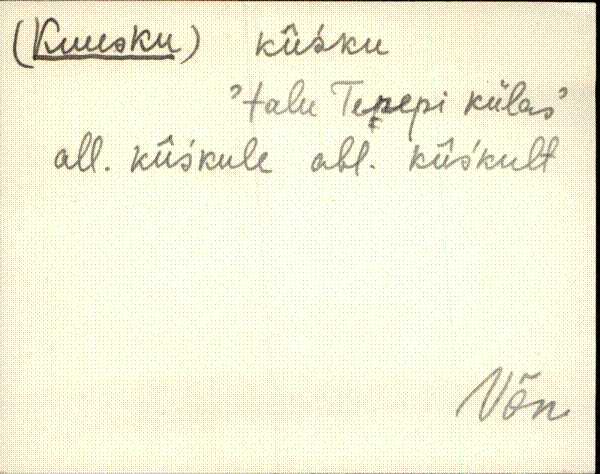 (Kuusku) kûśku
'talu Terepi külas'
all. kûśkule abl. kûśkult
Võn